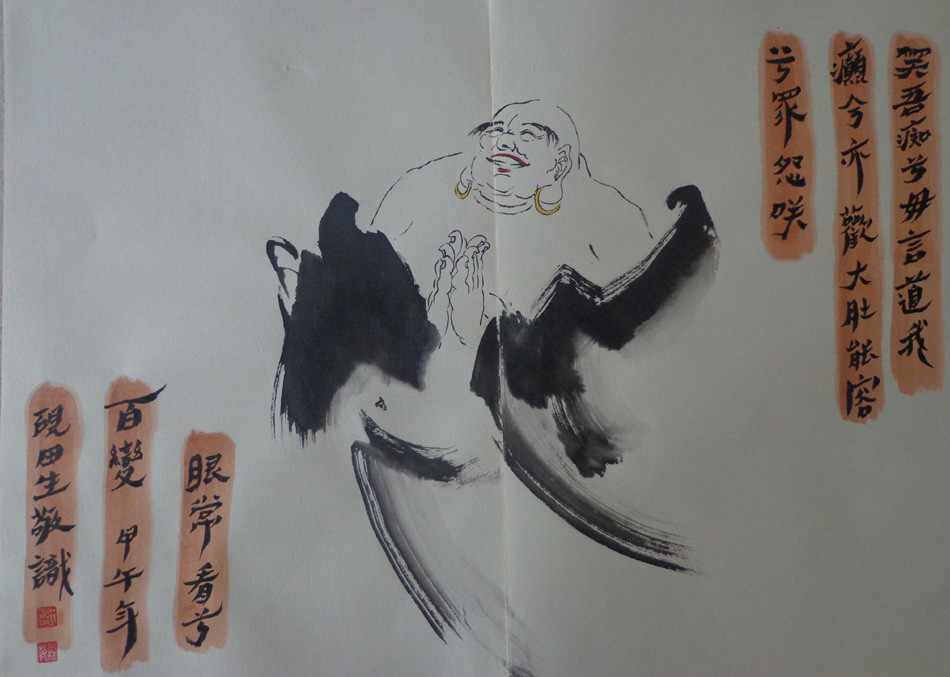 笑吾痴兮毋言道我
癲兮亦歡大肚能容
兮眾怨咲
眼常看兮
百變 甲午年
硯田生敬識